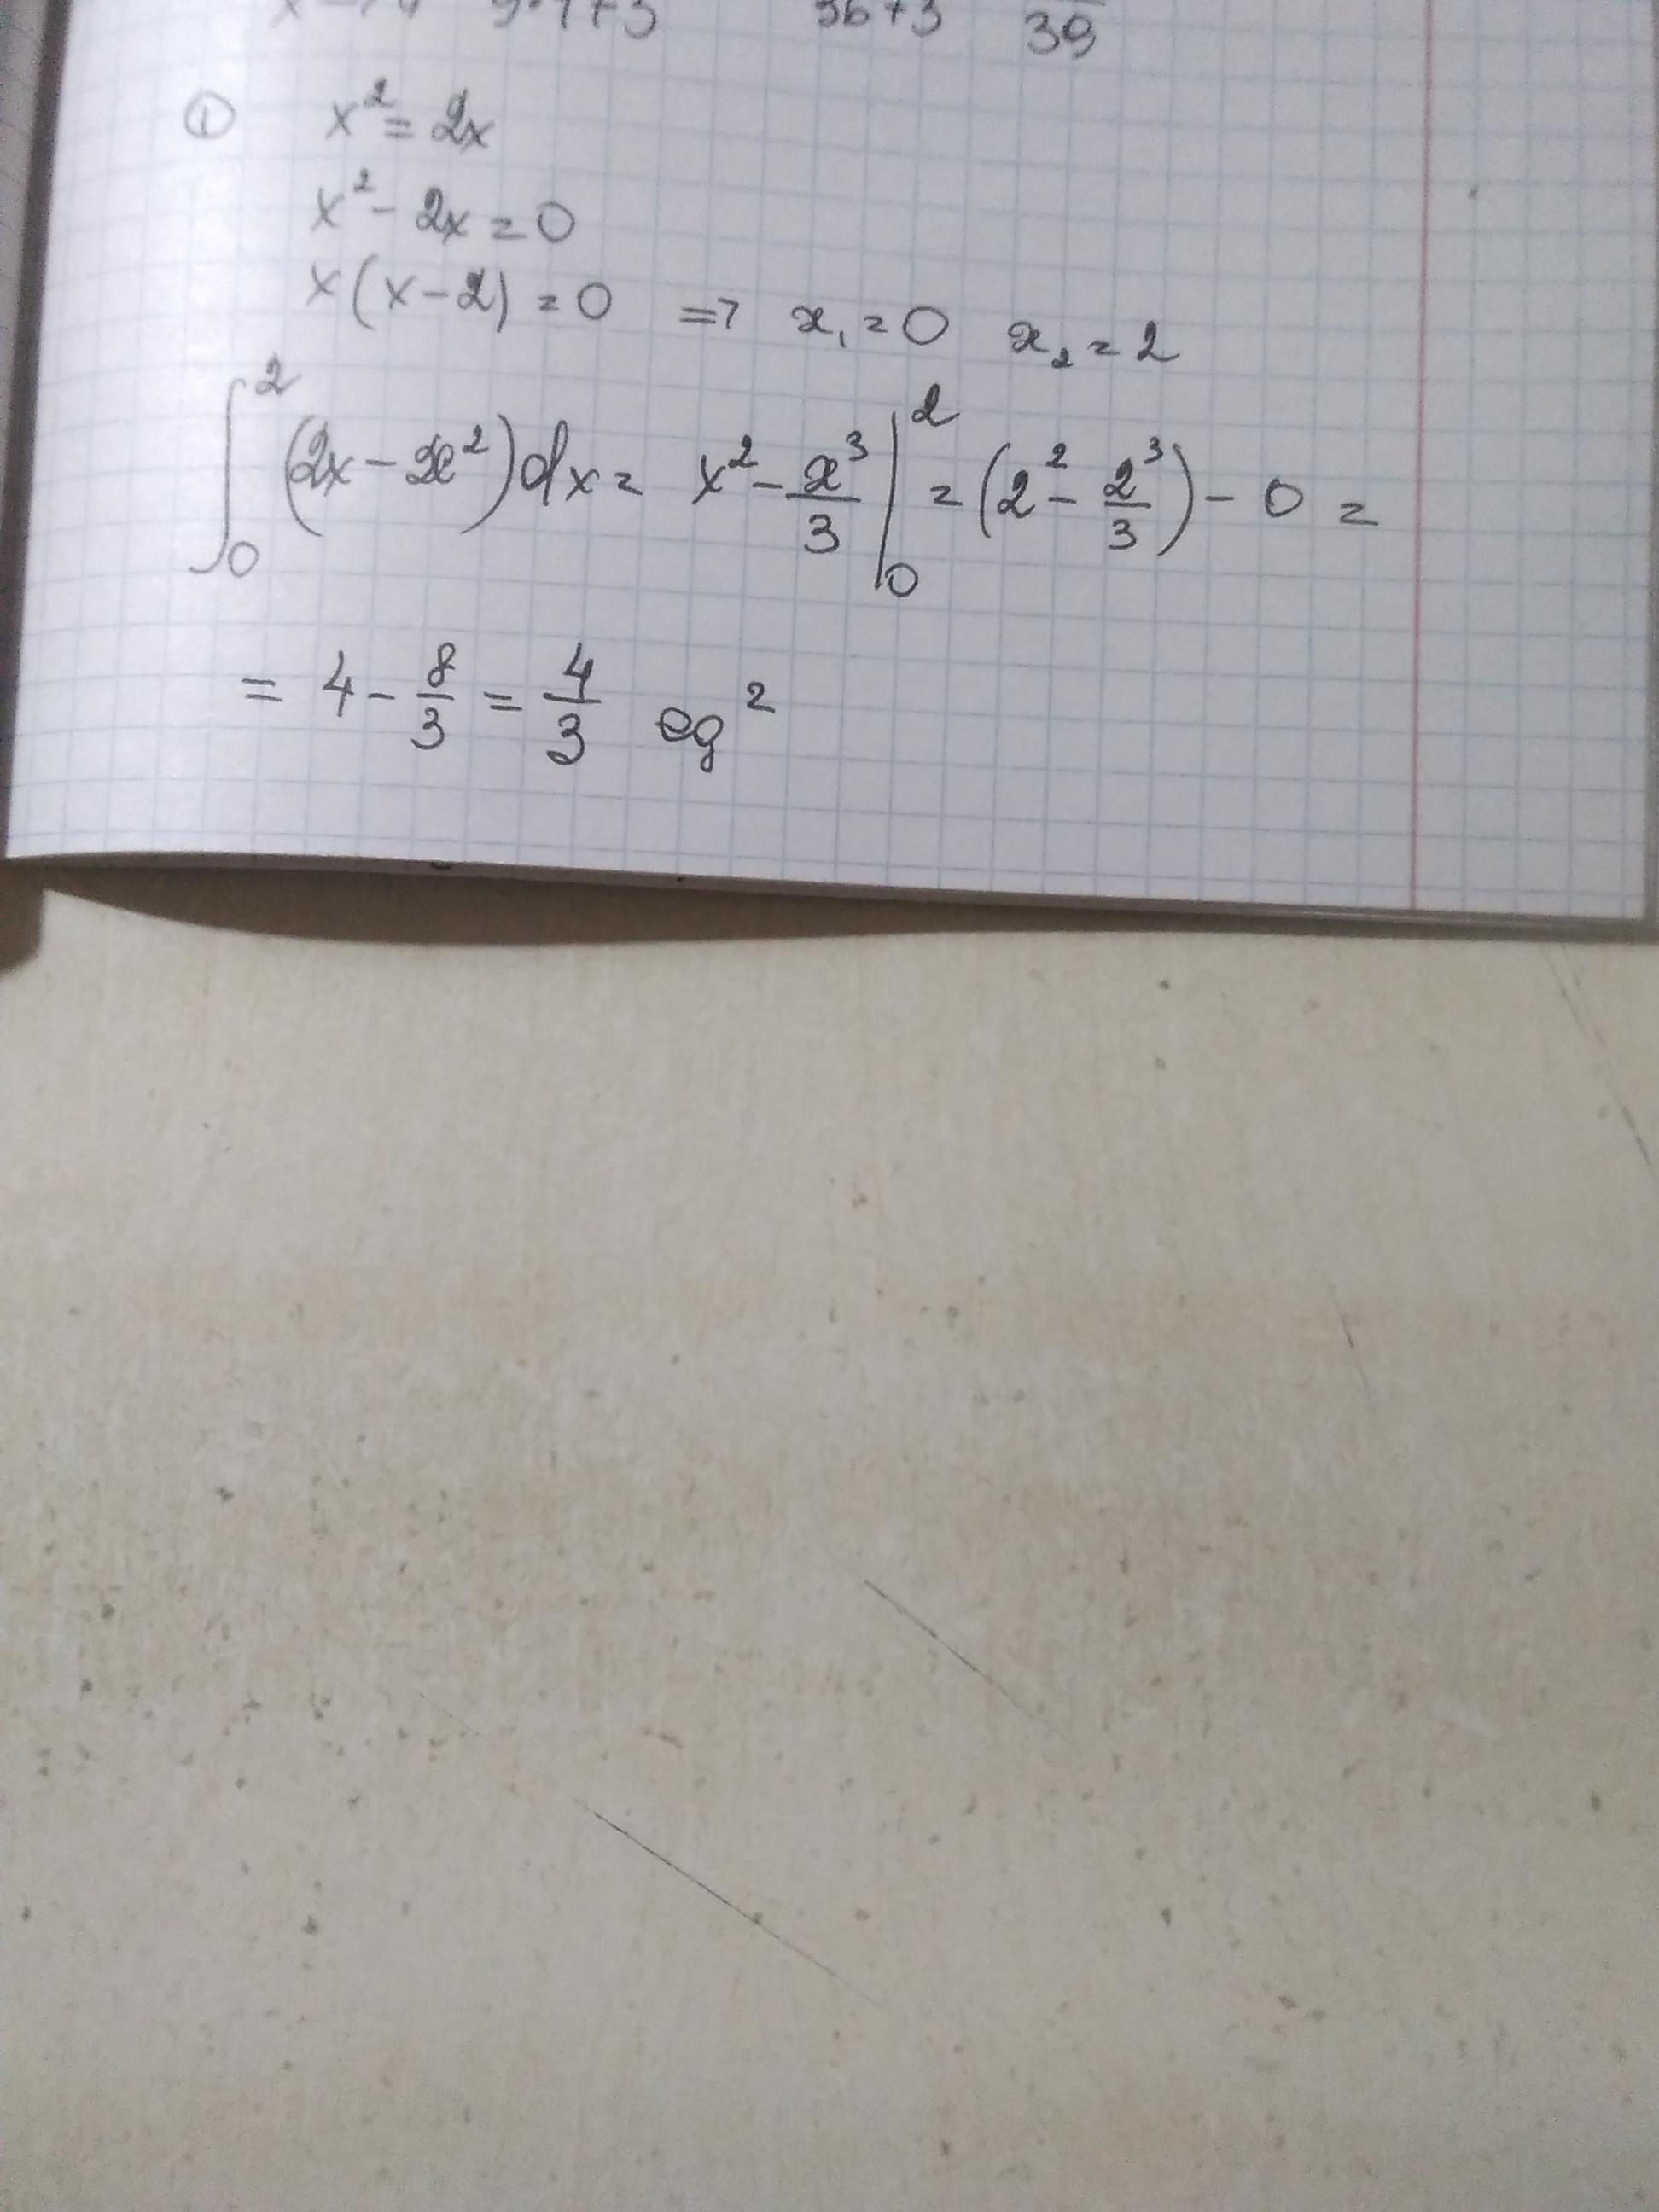 36+3 39
① x² = 2x
x² - 2x = 0
x(x-2) = 0 => x₁ = 0 x₂ = 2
∫₀² (2x - x²) dx = x² - x³/3 |₀² = (2² - 2³/3) - 0 =
= 4 - 8/3 = 4/3 eg²